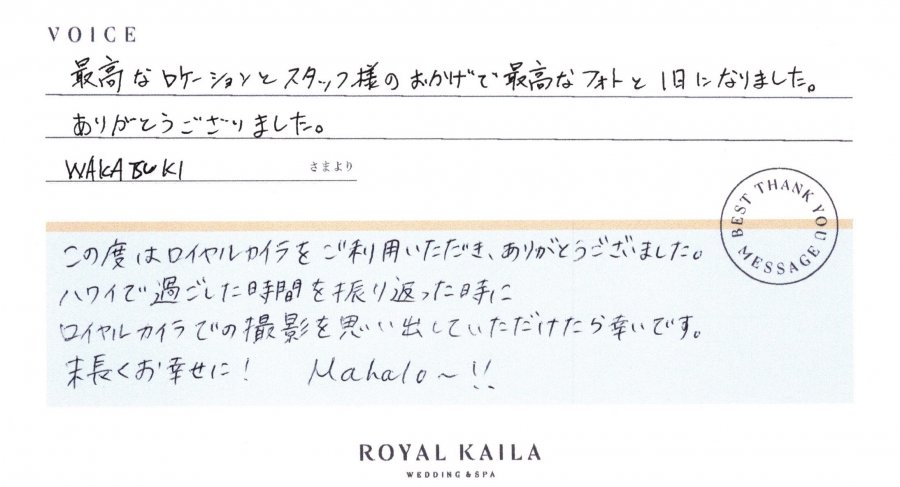 VOICE
最高なロケーションとスタッフ様のおかげで最高なフォトと1日になりました。
ありがとうございました。
WAKATSUKI さまより
BEST THANK YOU MESSAGE
この度はロイヤルカイラをご利用いただき、ありがとうございました。
ハワイで過ごした時間を振り返った時に
ロイヤルカイラでの撮影を思い出していただけたら幸いです。
末長くお幸せに! Mahalo~!!
ROYAL KAILA
WEDDING & SPA